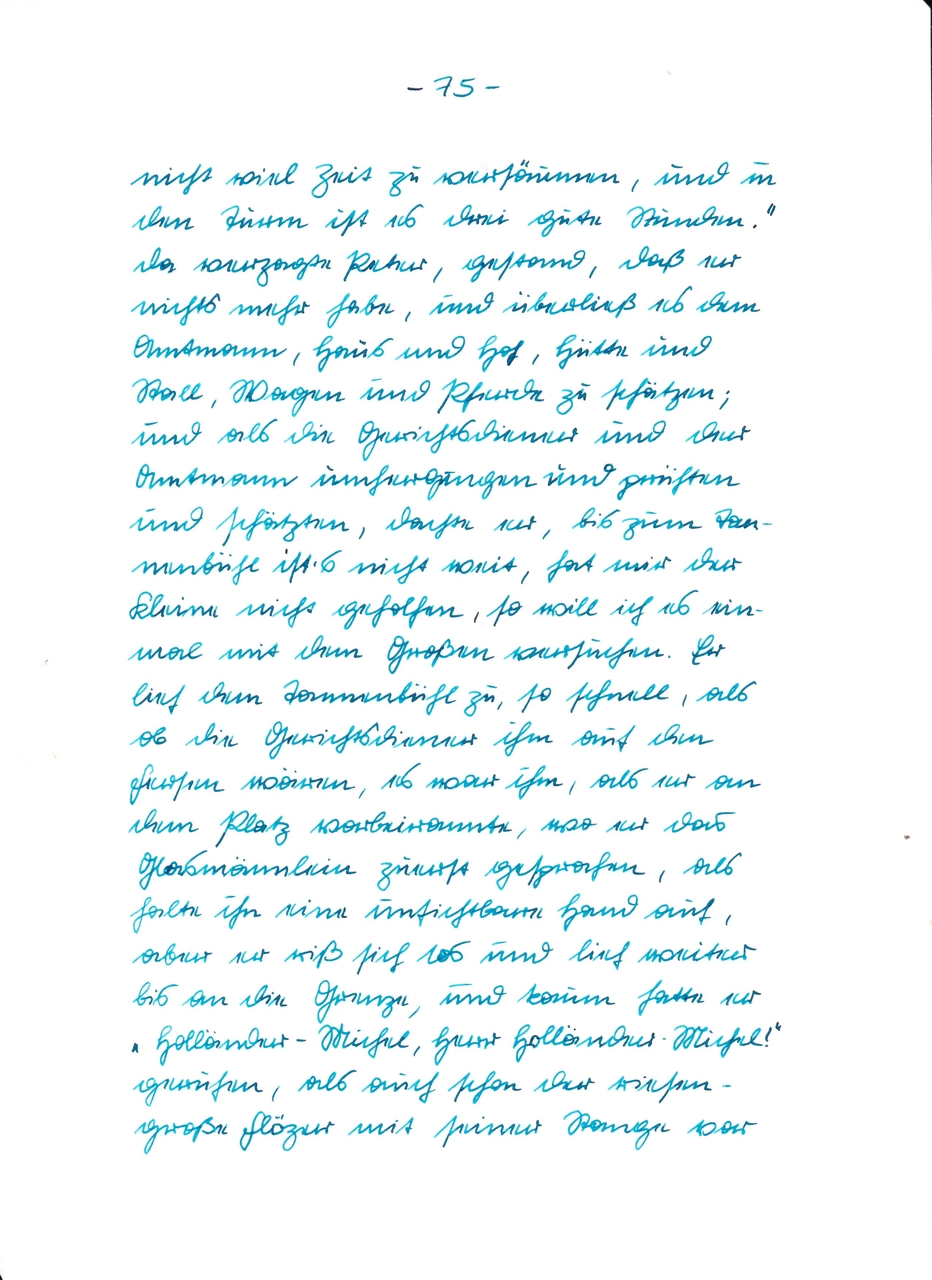 - 75 -
nicht viel Zeit zu versäumen, und in
den Turm ist es drei gute Stunden."
Da verzagte Peter, gestand, daß er
nichts mehr habe, und überließ es dem
Amtmann, Haus und Hof, Hütte und
Stall, Wagen und Pferde zu schätzen;
und als die Gerichtsdiener und der
Amtmann umhergingen und prüften
und schätzten, dachte er, bis zum Tan-
nenbühl ist's nicht weit, hat mir der
Kleine nicht geholfen, so will ich es ein-
mal mit dem Großen versuchen. Er
lief dem Tannenbühl zu, so schnell, als
ob die Gerichtsdiener ihm auf den
Fersen wären, es war ihm, als er an
dem Platz vorbeirannte, wo er das
Glasmännlein zuerst gesprochen, als
halte ihn eine unsichtbare Hand auf,
aber er riß sich los und lief weiter
bis an die Grenze, und kaum hatte er
„Holländer-Michel, Herr Holländer-Michel!"
gerufen, als auch schon der riesen-
große Flözer mit seiner Stange vor